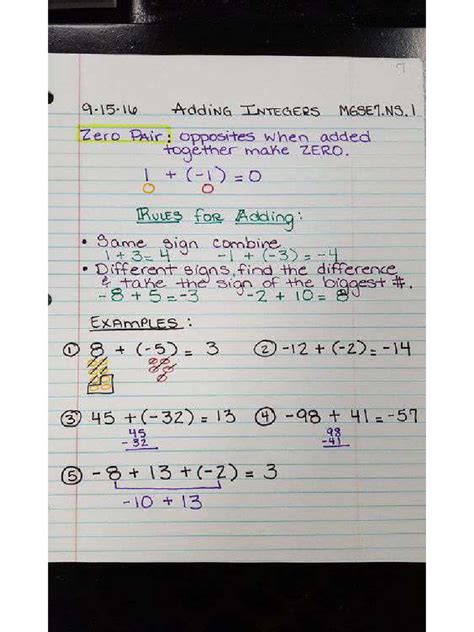 7
9-15-16 Adding Integers MGSE7.NS.1
Zero Pair: opposites when added
together make ZERO.
1 + (-1) = 0
Rules for Adding:
• Same sign combine
1 + 3 = 4 -1 + (-3) = -4
• Different signs, find the difference
& take the sign of the biggest #.
-8 + 5 = -3 -2 + 10 = 8
Examples:
① 8 + (-5) = 3 ② -12 + (-2) = -14
③ 45 + (-32) = 13 ④ -98 + 41 = -57
45 98
-32 -41
⑤ -8 + 13 + (-2) = 3
-10 + 13